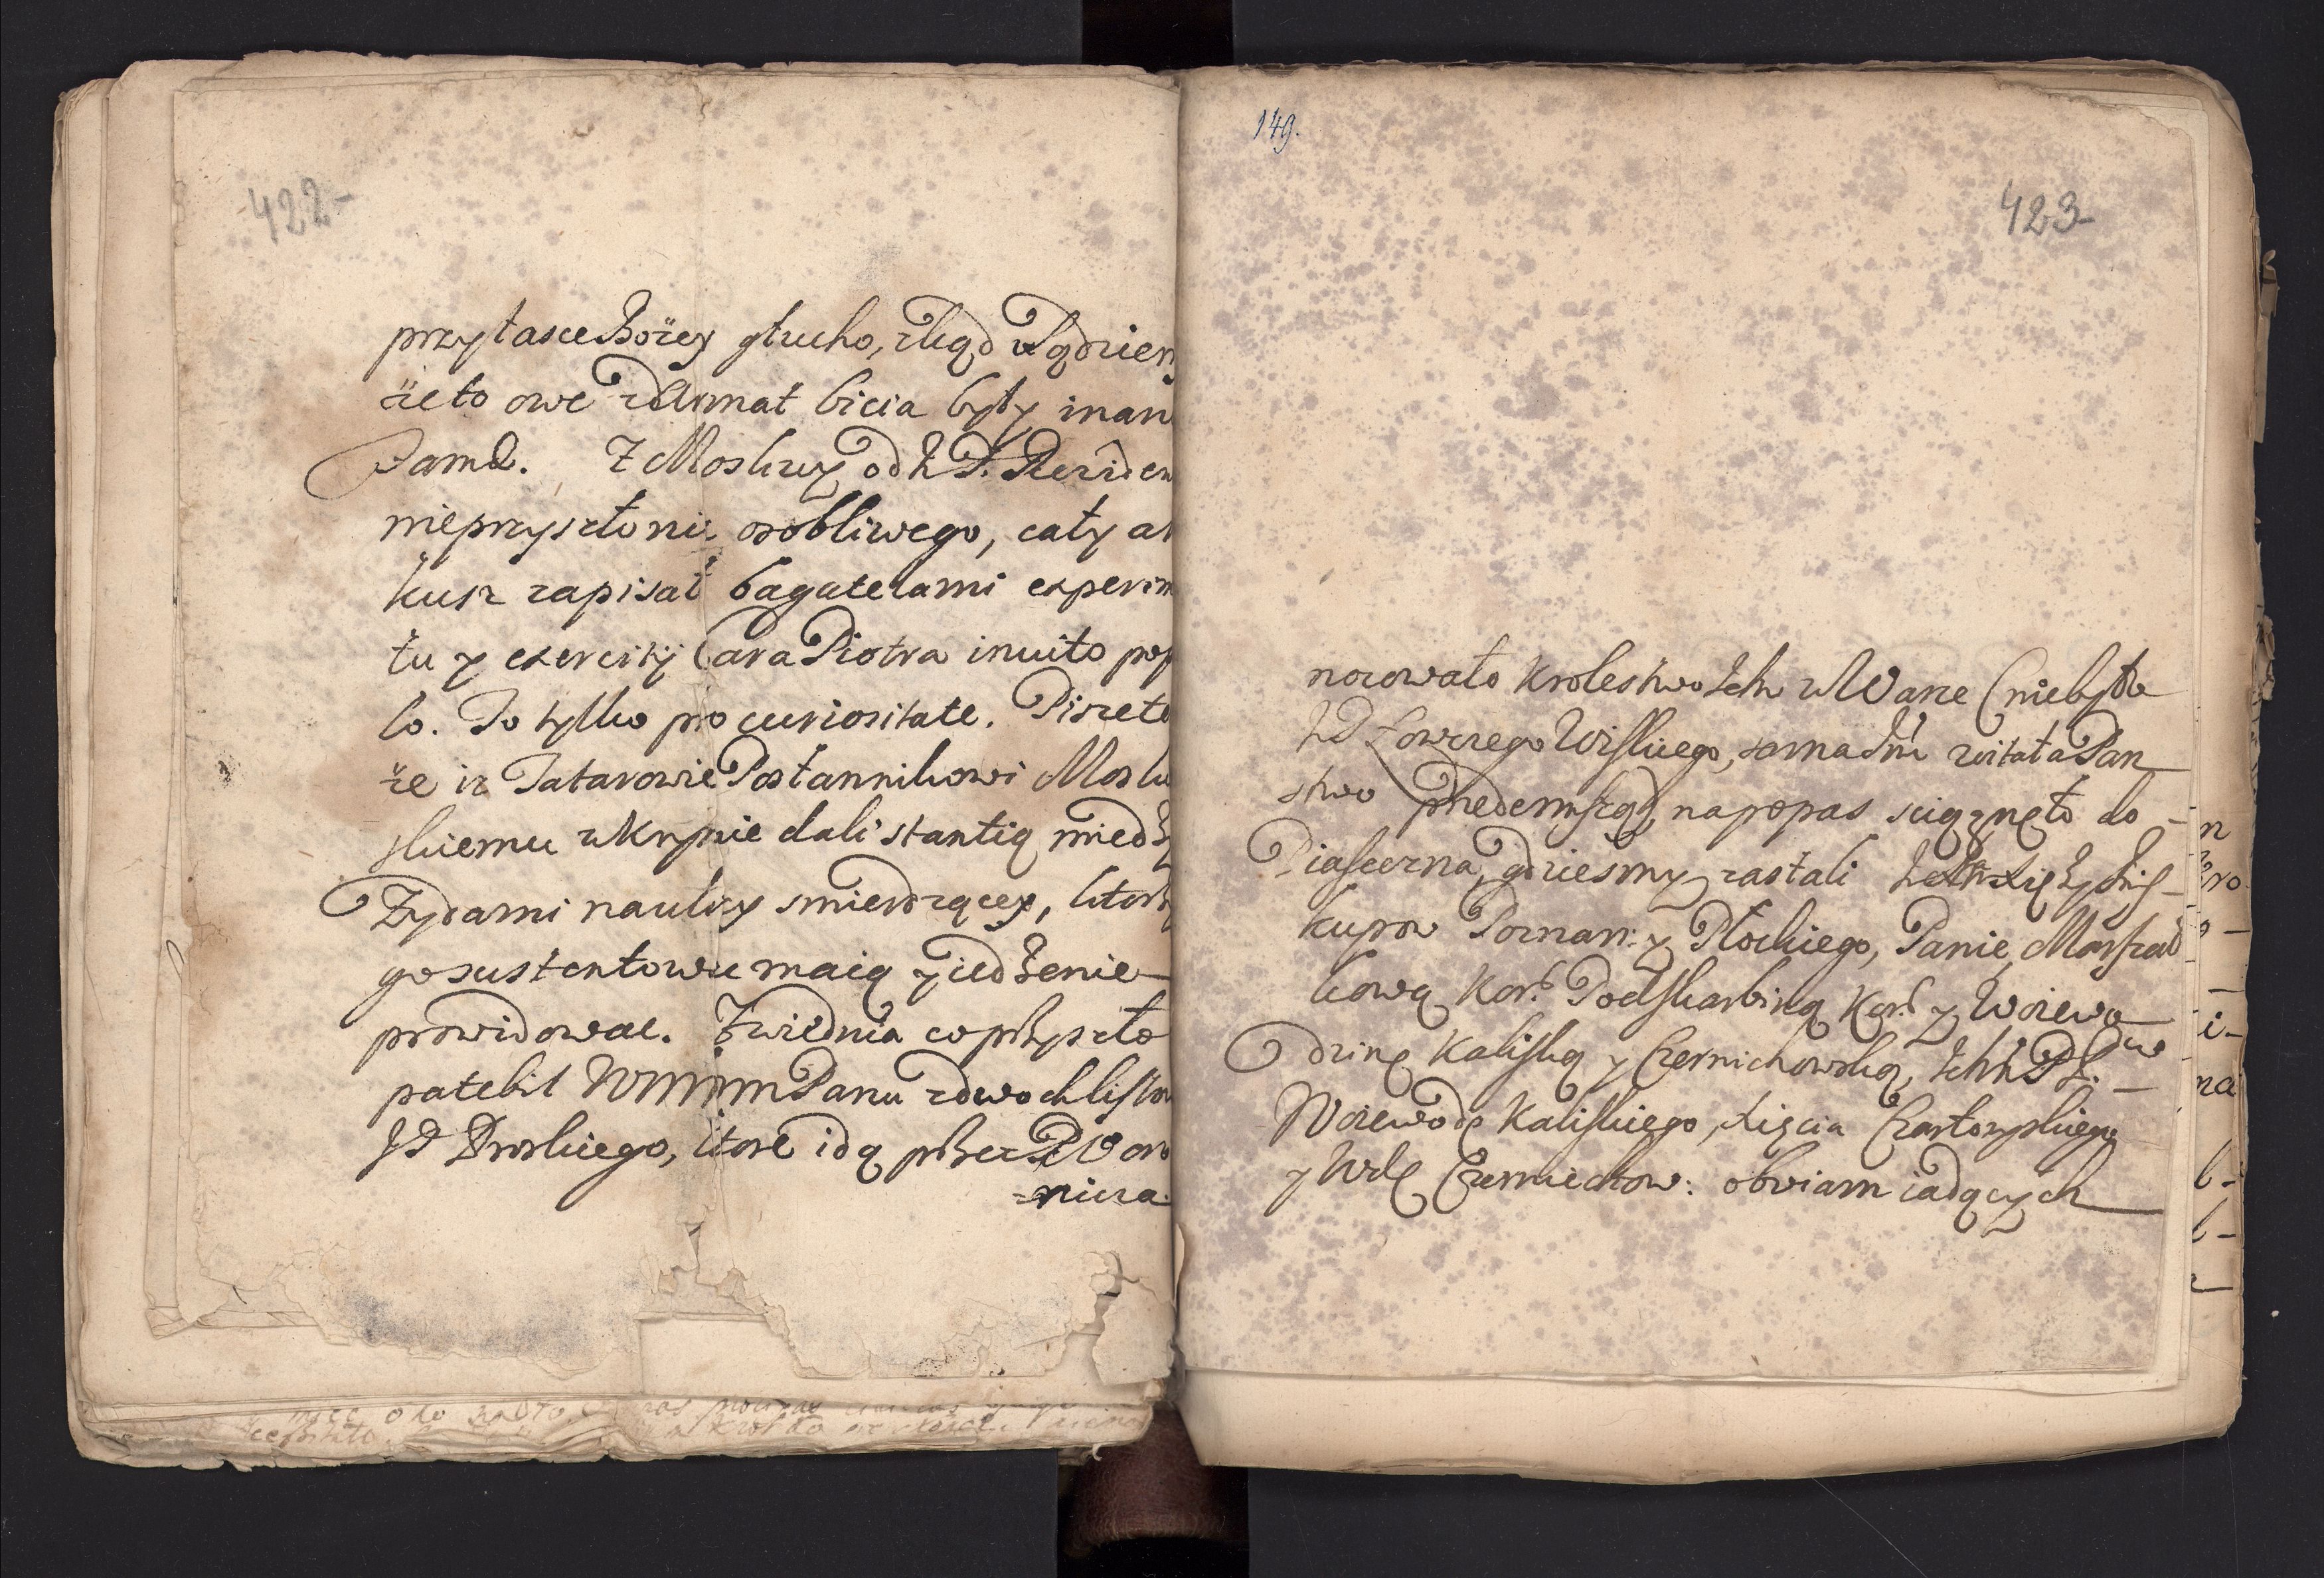 422-
przy łasce Bożey głucho, zkąd wądziem
że to owe z Armat bicia były inan
Fama. Z Moskwy od h P. Reziden
nieprzyszło nic osobliwego, cały ar
kusz zapisał bagatelami experim
tu y exercitÿ Cara Piotra invito pop
lo. To tylko pro curiositate. Pisze to
że iz Tatarowie Posłannikowi Mosk
skiemu w Krymie dali stantią miedzy
Zydami naulicy smierdzącey, ktorzy
go sustentowac maią y iedzenie
prowidowac. Z Wiednia co przyszło
patebit WMMM Panu z dwoch listow
JP Proskiego, ktore idą przez P Woro
=nicza
149.
423-
nocowało Krolestwo Ich w Warce (nie było
h P Łowczego Wisskiego, sama Jm witała Pan
stwo przedemszą, na popas sciągnęło do
Piaseczna, gdziesmy zastali Ich Xięży Bis-
kupow Poznan: y Płockiego, Panie Marszał
kową Kor. Podskarbiną Kor. y Woiewo
dzinę Kaliską y Czernichowską, Ich P P.
Woiewodę Kaliskiego, Xięcia Czartoryskiego
y Wdę Czerniechow: obviam iadących